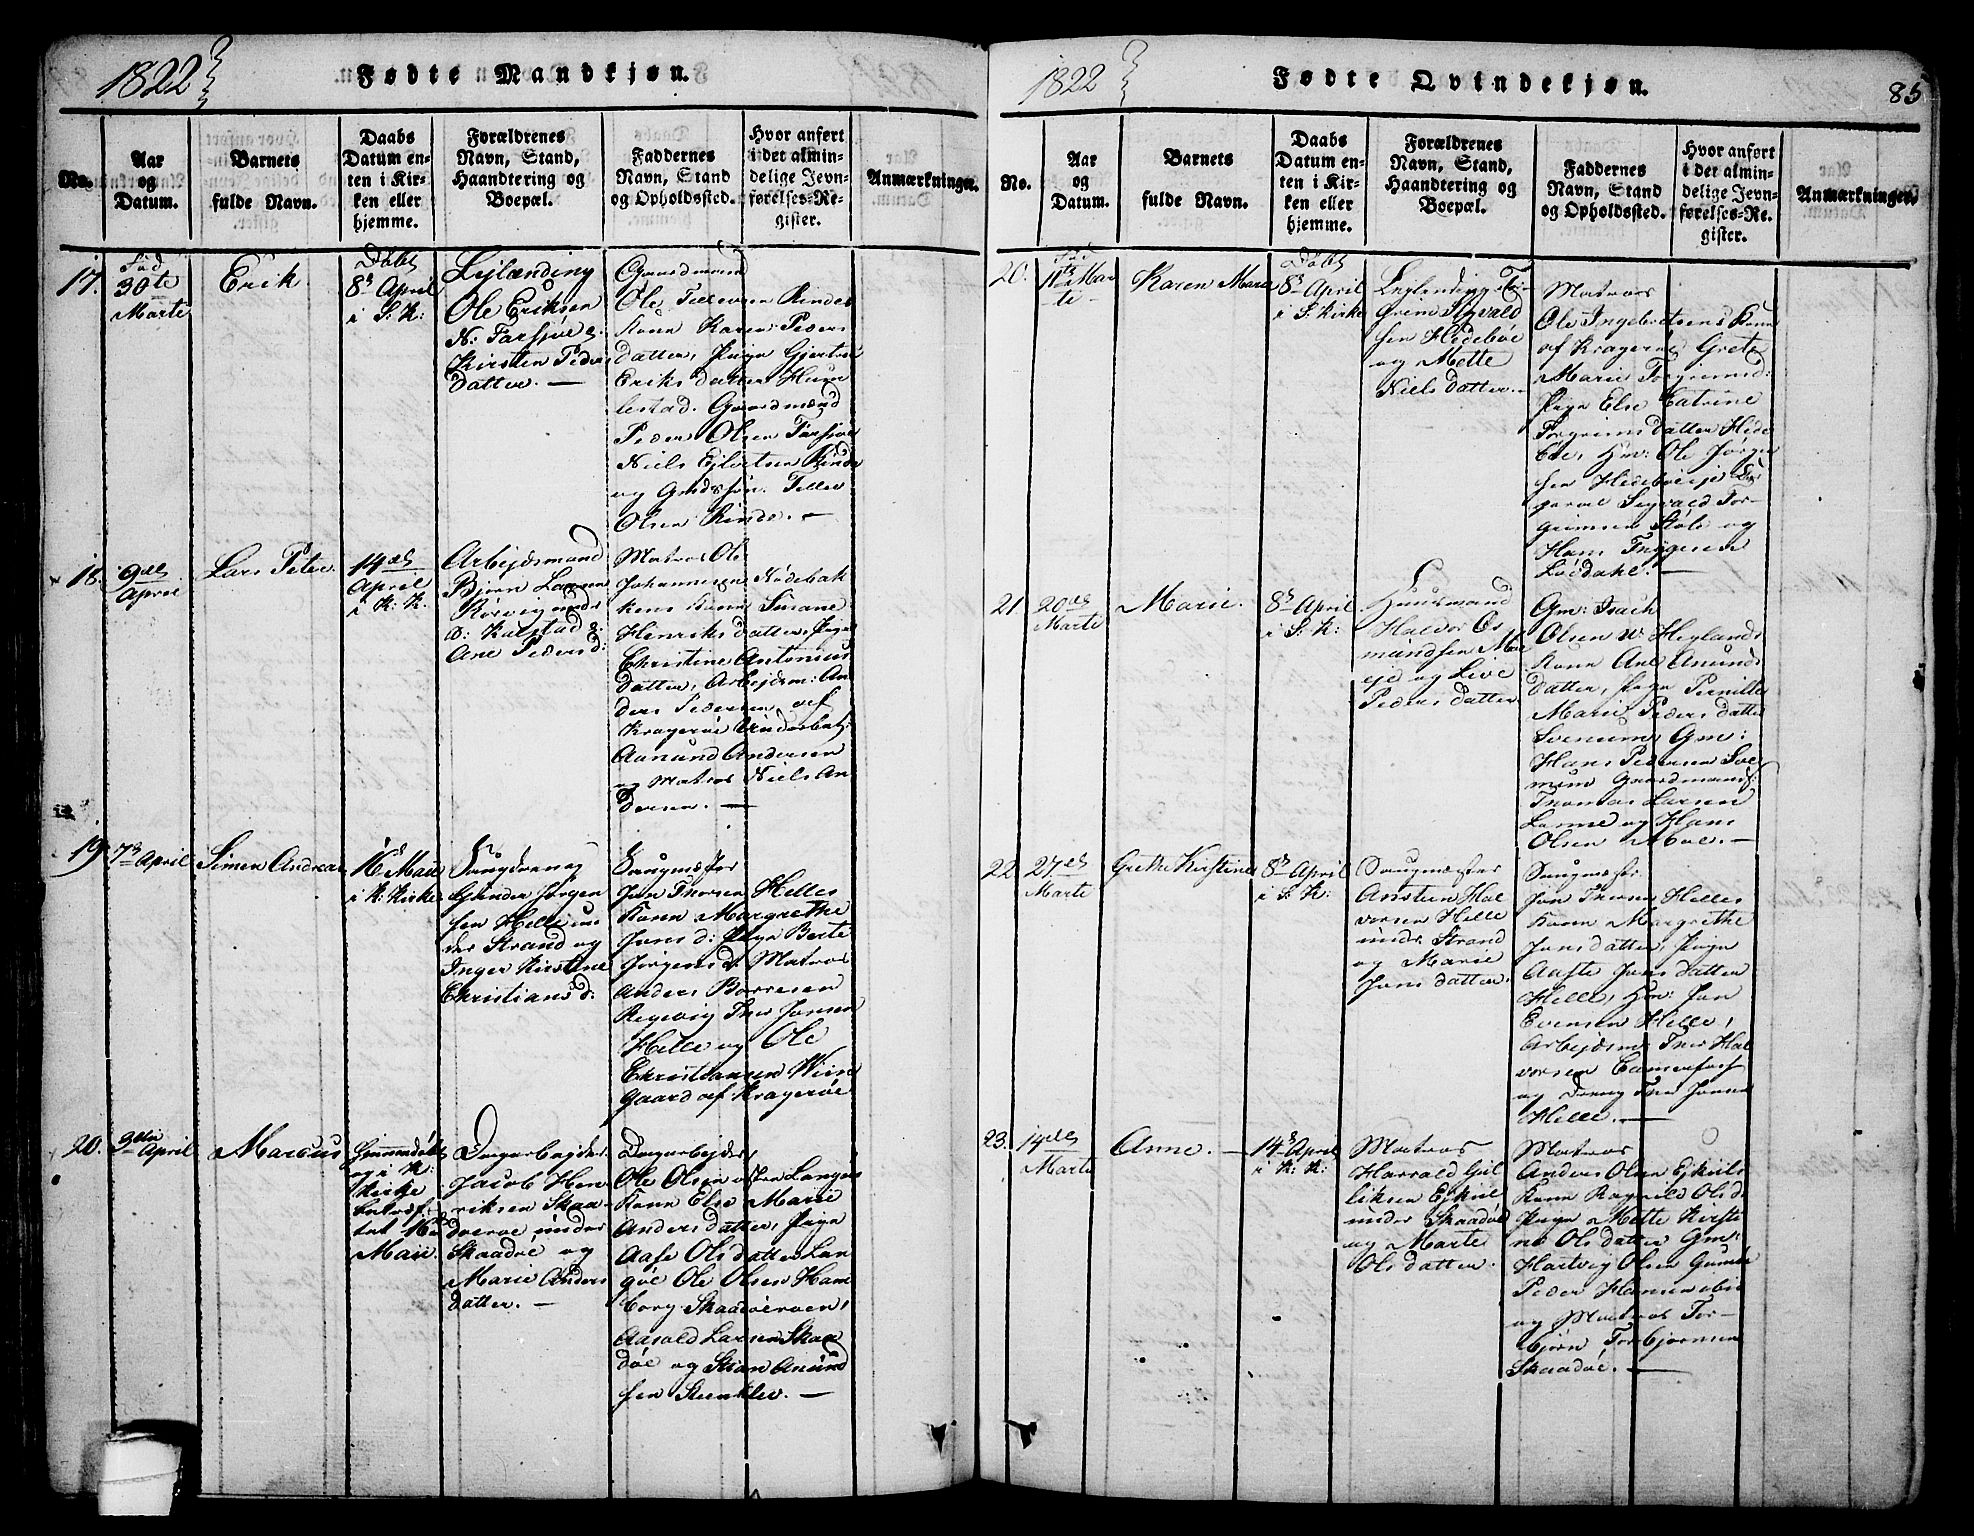 1822
Fødte Mandkjøn.
No.
Aar
og
Datum.
Barnets
fulde Navn.
Daabs
Datum en-
ten i Kir-
ken eller
hjemme.
Forældrenes
Navn, Stand,
Haandtering og
Boepæl.
Faddernes
Navn, Stand
og Opholdssted.
Hvor anført
i det almin-
delige Jevn-
førelses-Re-
gister.
Anmærkninger.
17.
Fød
30te
Marte
Erik
Døbt
8de April
i S: K:
Leylænding
Ole Eriksen
N: Farsjøe &
Kirsten Peders
datter. —
Gaardmand
Ole Tellevsen Rindes
Kone Karen Peders
datter, Pige Gjertrud
Eriks datter Hum
lestad. Gaardmænd
Peder Olsen Farsjøe
Niels Ejlertsen Rinde
og Gmdssøn. Tellev
Olsen Rinde. —
18.
9de
April
Lars Peter
14de
April
i K: K.
Arbejdsmand
Bjørn Larsen
Rørvig under
Kalstad &
Ane Peders d:
Matros Ole
Johannesen Nødebak
kens Kone Susane
Henriks datter, Pige
Christine Antonius
datter, Arbejdsm: An
ders Pedersen af
Kragerøe
Aanund Andersen
og Matros Niels An
dersen. —
19.
7de April
Simen Andreas
16de Maii
i K: Kirke
Saugdreng
Gunder Jørgen
sen Helle un
der Strand og
Inger Kirstine
Christians d:
Saugmester
Jon Thorsen Helles
Kone Margrethe
Jons d: Pige Berte
Jørgens d. Matros
Anders Børresen
Thor Jonsen
Helle og Ole
Christiansen Wiin
gaard af Kragerøe
20.
3die
April
Marcus
Hjemmedøbt
og i K:
Kirke
16de
Maii
Dagarbejder
Jacob Hen
riksen Skaa
døeroe under
Skaadøe og
Marie Anders
datter. —
Dagarbejder
Ole Olsen Langøe
Kone Else Marie
Anders datter, Pige
Aase Ols datter Lan
gøe Ole Olsen Ham
borg Skaadøeroen,
Aasold Larsen Skaa
døe og Stian Anund
sen Stenklev. —
1822
Fødte Qvindekjøn.
85
No.
Aar
og
Datum.
Barnets
fulde Navn.
Daabs
Datum en-
ten i Kir-
ken eller
hjemme.
Forældrenes
Navn, Stand,
Haandtering og
Boepæl.
Faddernes
Navn, Stand
og Opholdssted.
Hvor anført
i det almin-
delige Jevn-
førelses-Re-
gister.
Anmærkninger.
20.
Fød
11te Mar
te —
Karen Marie
Døbt
8de April
i S. Kirke
Leylænding Tor
grim Sigvald
sen Hedebøe
og Mette
Niels datter. —
Matros
Ole Ingebretsens Kone
af Kragerøe Grete
Marie Torgrimsd:
Pige Else Catrine
Torgrims datter Hede
bøe, Hm: Ole Jørgen
sen Hedebøeeje
Sigvald Tor
grimsen Støle og
Hans Trygesen
Lødahl. —
21
20de
Marte
Marie.
8de April
i S: K:
Huusmand
Halvor Os
mundsen Moe
eje og Live
Peders datter
Gm: Isach
Olsen N: Heglands
Kone Ane Anunds
datter, Pige Pernille
Marie Peders datter
Svenum, Gm:
Hans Pedersen Sve
num Gaardmands:
Thomas Larsen
Lønne og Hans
Olsen Moe. —
22
27de
Marte
Grethe Kirstine
8de April
i S. K:
Saugmester
Ansten Hal
vorsen Helle
under Strand
og Marie
Jons datter.
Saugmester
Jon Thorsen Helles
Kone Margrethe
Jons datter, Pige
Aaste Jons datter
Helle, Hm: Jon
Evensen Helle,
Arbejdsm: Thor Hal
vorsen
og Dreng Thor Jonsen
Helle. —
23.
14de
Marte
Anne. —
14de April
i K: K:
Matros
Harrald Gul
liksen Ejkvil
under Skaadøe
og Marte
Ols datter.
Matros
Anders Olsen Ejkvils
Kone Ragnild Ols d.
Pige Mette Kirsti
ne Ols datter Gm:
Hartvig Olsen Gumøe
Peder Hansen ibid
og Matros Tor-
bjørn Torbjørnsen
Skaadøe. —